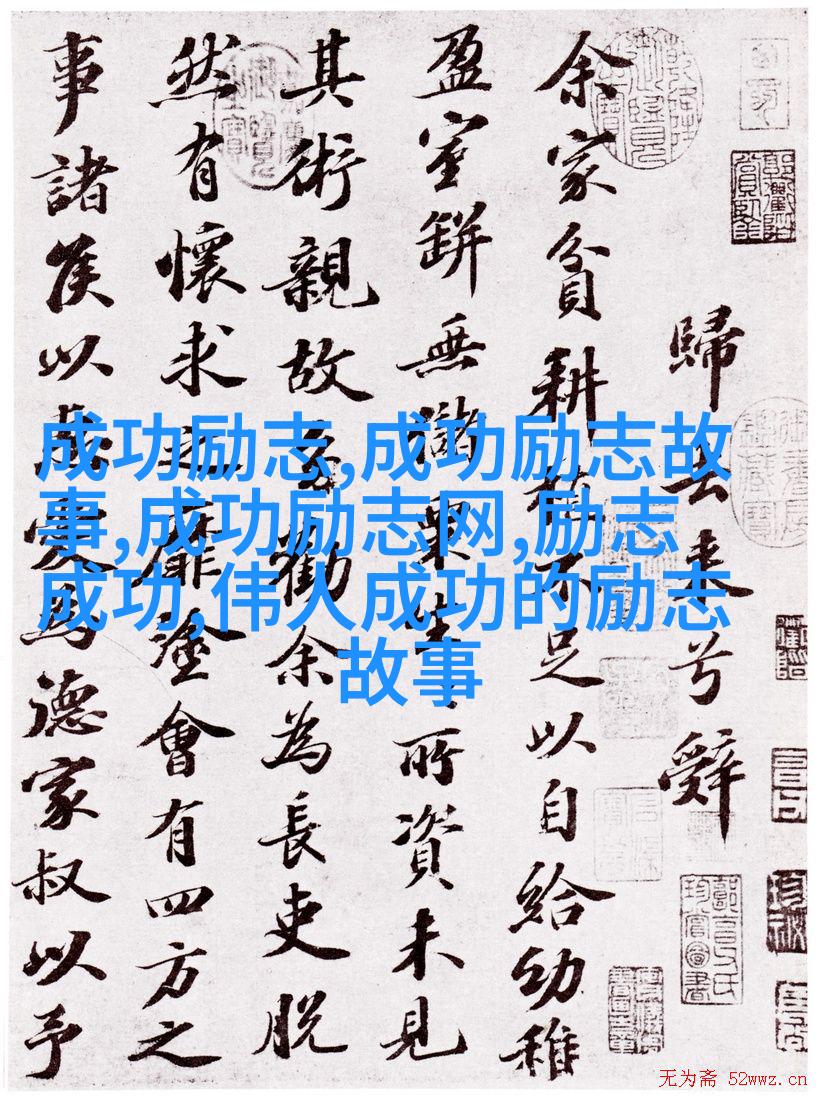 歸去来兮辭
余家貧耕植不足以自給幼稚
盈室缾無儲粟生生所資未見
其術親故多勸余為長吏脱
然有懷求之靡塗會有四方之
事諸侯以惠愛為德家叔以予
成功励志,成功励志故
事,成功励志网,励志
成功,伟人成功的励志
故事
无为斋 52wwz.cn